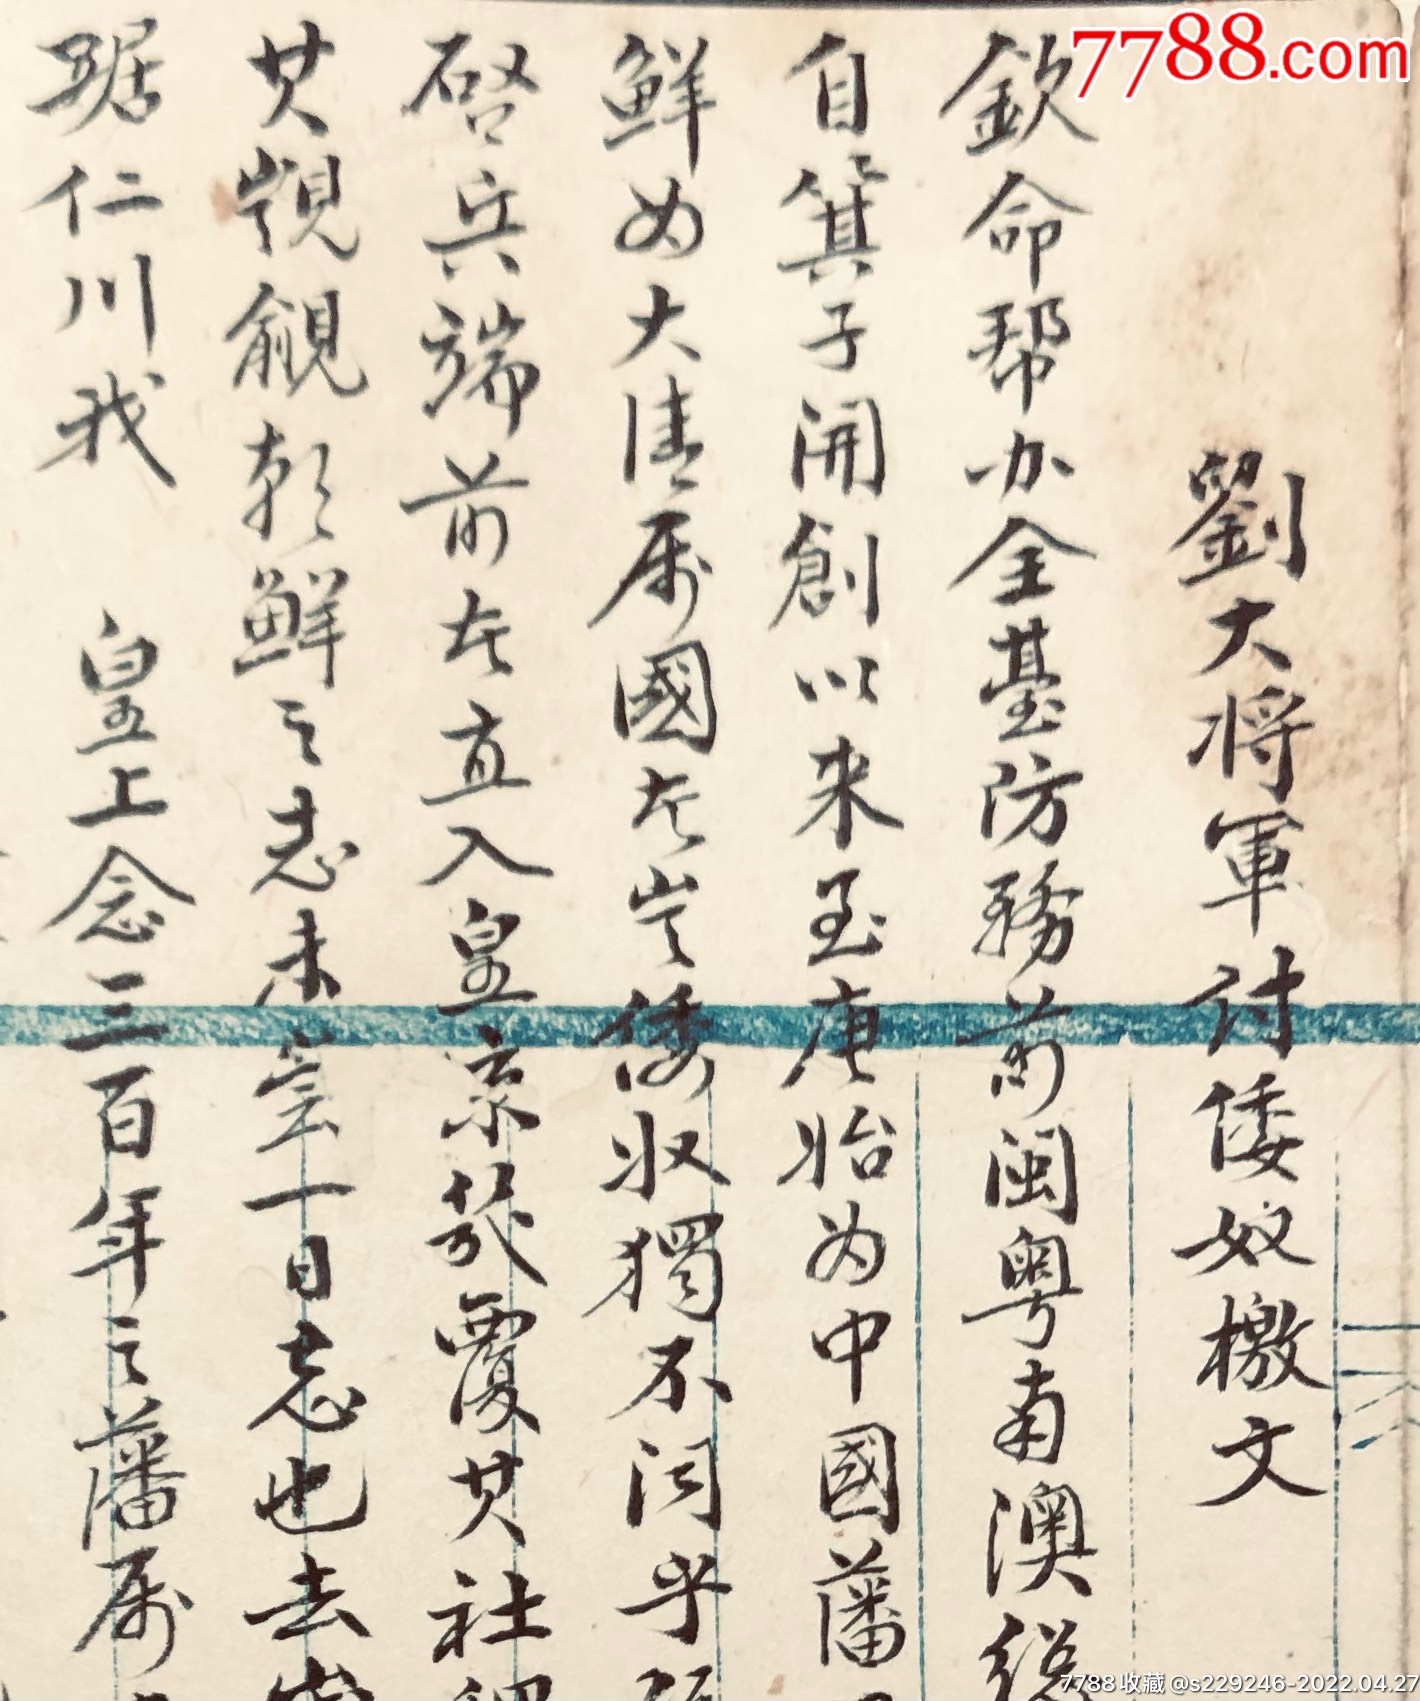 7788.com
劉大将軍討倭奴檄文
欽命帮办全臺防務前閩粤南澳総
自箕子開創以来至庚貽为中國藩
鮮为大清属國左豈倭奴獨不闻乎
啓兵端前左直入皇京幾覆其社稷
其覬覦朝鮮之志未尝一日忘也去歲
踞仁川我 皇上念三百年之藩属
7788收藏@s229246-2022.04.27